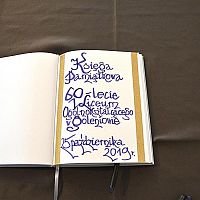 Księga
Pamiątkowa
60-lecie
I Liceum
Ogólnokształcącego
w Goleniowie
25 października
2019 r.